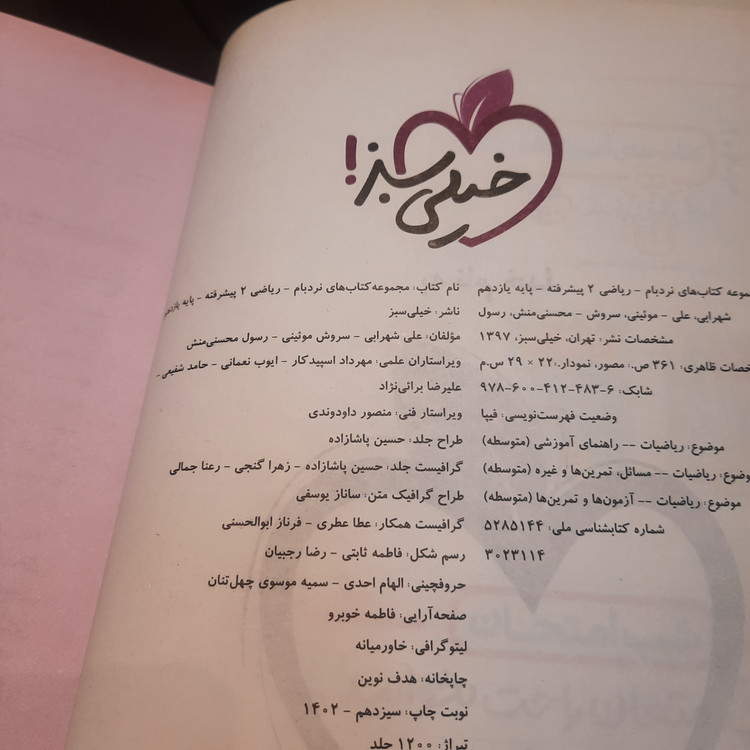 خیلی سبز!
مجموعه کتاب‌های نردبام - ریاضی ۲ پیشرفته - پایه یازدهم
شهرابی، علی - موئینی، سروش - محسنی‌منش، رسول
مشخصات نشر: تهران، خیلی‌سبز، ۱۳۹۷
ظاهری: ۳۶۱ ص.: مصور، نمودار.؛ ۲۲ × ۲۹ س.م
شابک: ۶-۴۸۳-۴۱۲-۶۰۰-۹۷۸
وضعیت فهرست‌نویسی: فیپا
موضوع: ریاضیات -- راهنمای آموزشی (متوسطه)
موضوع: ریاضیات -- مسائل، تمرین‌ها و غیره (متوسطه)
موضوع: ریاضیات -- آزمون‌ها و تمرین‌ها (متوسطه)
شماره کتابشناسی ملی: ۵۲۸۵۱۴۴
۳۰۲۳۱۱۴
نام کتاب: مجموعه کتاب‌های نردبام - ریاضی ۲ پیشرفته - پایه یازدهم
ناشر: خیلی‌سبز
مؤلفان: علی شهرابی - سروش موئینی - رسول محسنی‌منش
ویراستاران علمی: مهرداد اسپیدکار - ایوب نعمانی - حامد شفیعی -
علیرضا براتی‌نژاد
ویراستار فنی: منصور داودوندی
طراح جلد: حسین پاشازاده
گرافیست جلد: حسین پاشازاده - زهرا گنجی - رعنا جمالی
طراح گرافیک متن: ساناز یوسفی
گرافیست همکار: عطا عطری - فرناز ابوالحسنی
رسم شکل: فاطمه ثابتی - رضا رجبیان
حروفچینی: الهام احدی - سمیه موسوی چهل‌تنان
صفحه‌آرایی: فاطمه خوبرو
لیتوگرافی: خاورمیانه
چاپخانه: هدف نوین
نوبت چاپ: سیزدهم - ۱۴۰۲
تیراژ: ۱۲۰۰ جلد